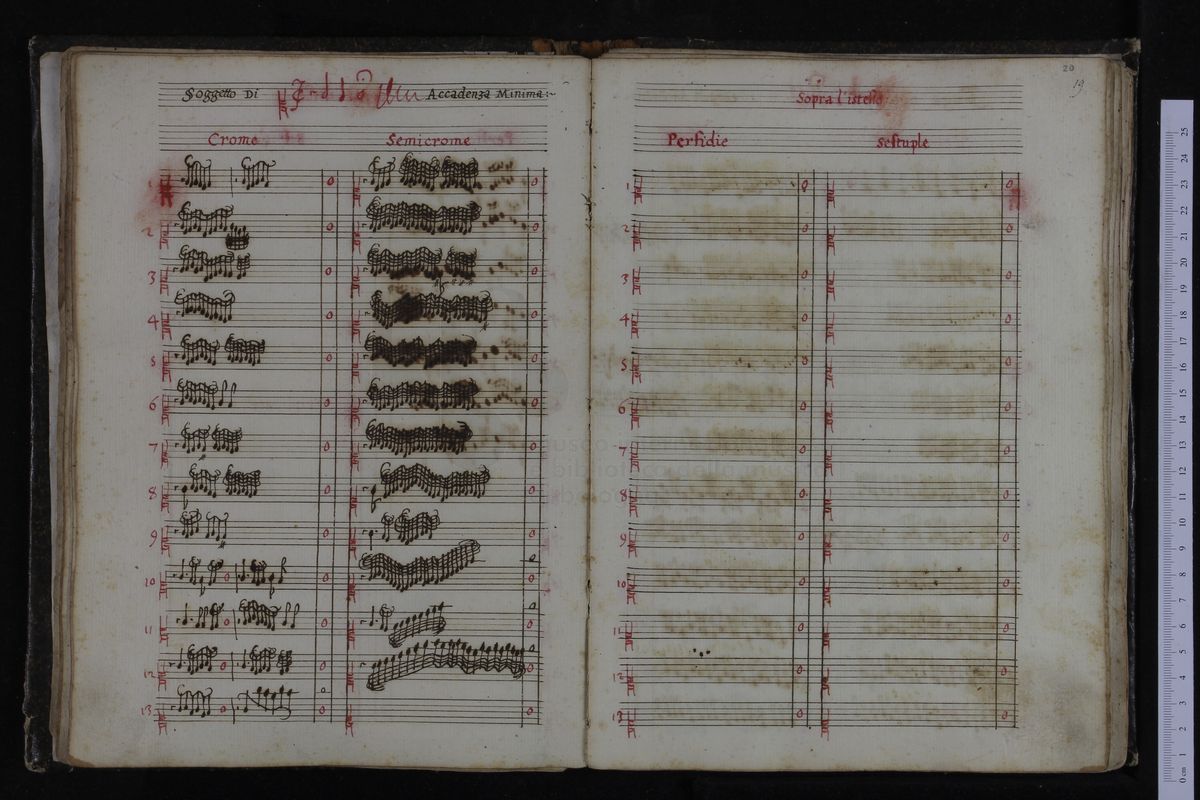 Soggetto Di Accadenza Minima:~
Crome Semicrome
1
2
3
4
5
6
7
8
9
10
11
12
13
20
19
Sopra l'istesso
Perfidie Sestuple
1
2
3
4
5
6
7
8
9
10
11
12
13
museo internazionale
e biblioteca della musica
di bologna
0 cm 1 2 3 4 5 6 7 8 9 10 11 12 13 14 15 16 17 18 19 20 21 22 23 24 25